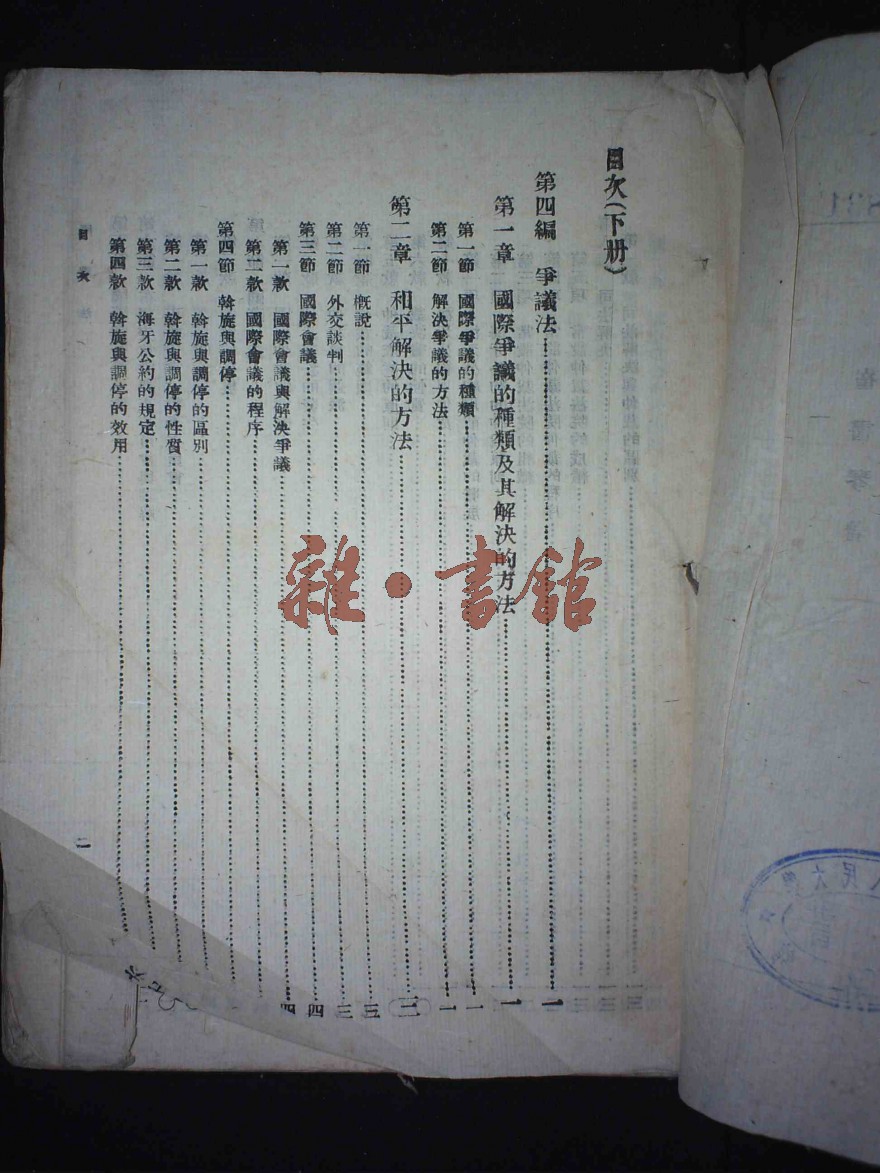 目次(下册)
第四編 爭議法 一
第一章 國際爭議的種類及其解決的方法 一
第一節 國際爭議的種類 一
第二節 解決爭議的方法 一
第二章 和平解決的方法 三
第一節 概說 三
第二節 外交談判 三
第三節 國際會議 四
第一款 國際會議與解決爭議 四
第二款 國際會議的程序
第四節 斡旋與調停
第一款 斡旋與調停的區別
第二款 斡旋與調停的性質
第三款 海牙公約的規定
第四款 斡旋與調停的效用
目次
雜·書館
人民大學